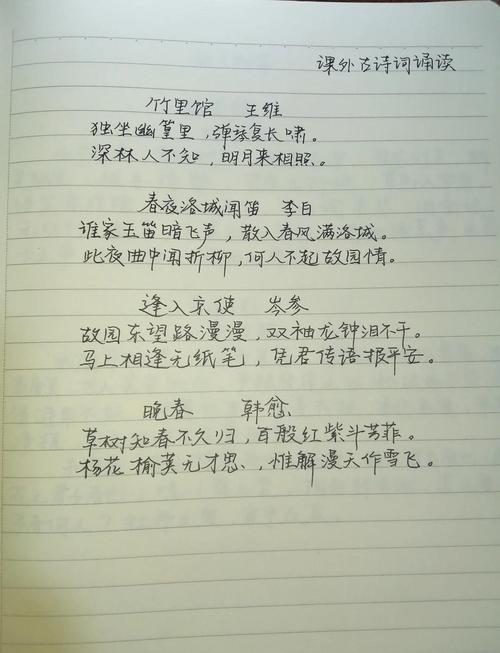 课外古诗词诵读
竹里馆 王维
独坐幽篁里，弹琴复长啸。
深林人不知，明月来相照。
春夜洛城闻笛 李白
谁家玉笛暗飞声，散入春风满洛城。
此夜曲中闻折柳，何人不起故园情。
逢入京使 岑参
故园东望路漫漫，双袖龙钟泪不干。
马上相逢无纸笔，凭君传语报平安。
晚春 韩愈
草树知春不久归，百般红紫斗芳菲。
杨花榆荚无才思，惟解漫天作雪飞。